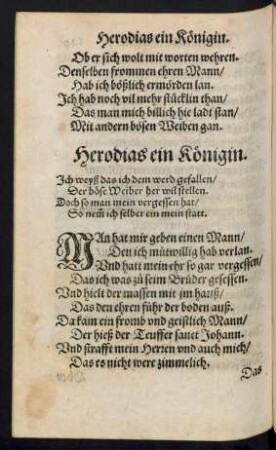 Herodias ein Königin.
Ob er sich wolt mit worten wehren.
Denselben frommen ehren Mann/
Hab ich bößlich ermörden lan.
Ich hab noch vil mehr stücklin than/
Das man mich billich hie ladt stan/
Mit andern bösen Weiben gan.
Herodias ein Königin.
Ich weyß das ich dem werd gefallen/
Der böse Weiber her wil stellen.
Doch so man mein vergessen hat/
So nem̃ ich selber ein mein statt.
MAn hat mir geben einen Mann/
Den ich mutwillig hab verlan.
Vnd hatt mein ehr so gar vergessen/
Das ich was zů seim Brůder gesessen.
Vnd hielt der massen mit jm hauß/
Das den ehren führ der boden auß.
Da kam ein fromb vnd geistlich Mann/
Der hieß der Teuffer sanct Johann.
Vnd strafft mein Herren vnd auch mich/
Das es nicht were zimmelich.
Das